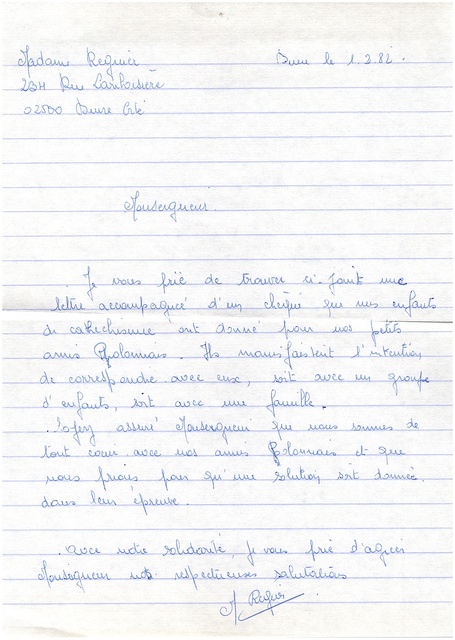 Madame Regnier
Buire le 1 2 82.
Rue Lariboisière
02500 Buire Cité
Monseigneur
Je vous prie de trouver ci-joint une
lettre accompagné d'un chèque que nos enfants
de catéchisme ont donné pour nos petits
amis Polonnais. Ils manifaistent l'intention
de correspondre avec eux, soit avec un groupe
d'enfants, soit avec une famille.
Soyez assuré Monseigneur que nous sommes de
tout cœur avec nos amis Polonnais et que
nous prions pour qu'une solution soit donnée
dans leur épreuve.
avec notre solidarité, je vous prie d'agréer
Monseigneur nos respectueuses salutations